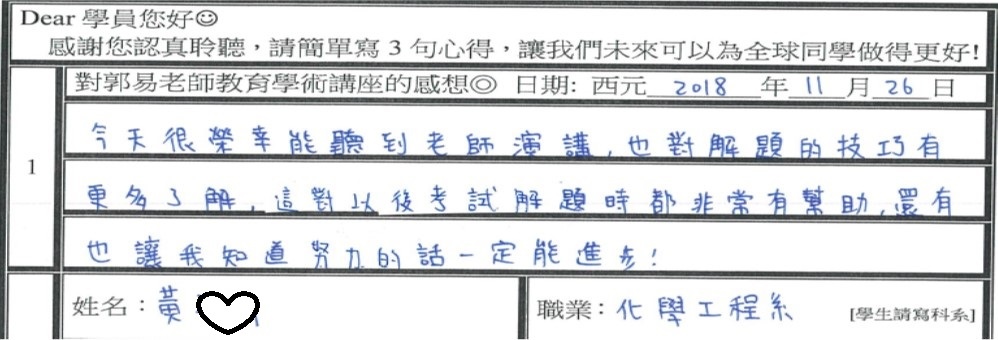 Dear 學員您好☺
感謝您認真聆聽，請簡單寫 3 句心得，讓我們未來可以為全球同學做得更好!
1
對郭易老師教育學術講座的感想◎ 日期: 西元 2018 年 11 月 26 日
今天很榮幸能聽到老師演講,也對解題的技巧有
更多了解,這對以後考試解題時都非常有幫助,還有
也讓我知道努力的話一定能進步!
姓名：黃
職業：化學工程系 [學生請寫科系]